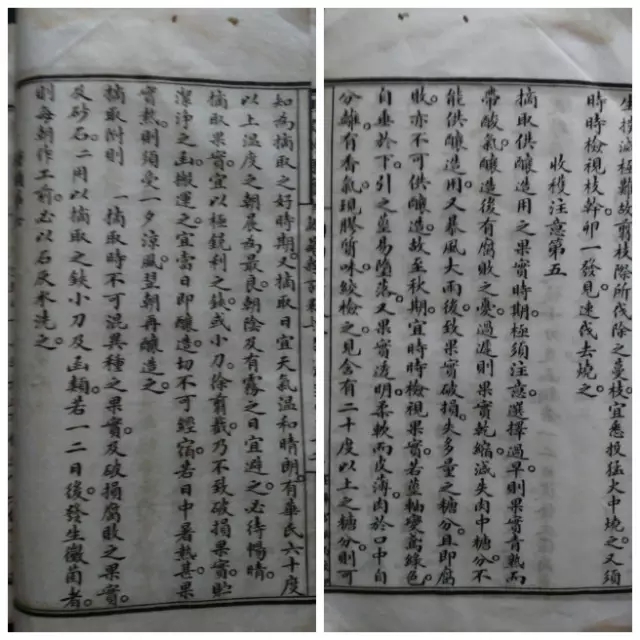 生投滅極難故剪枝際所伐除之蔓枝宜悉投猛火中燒之又須
時時檢視枝幹卵一發見速伐去燒之
收穫注意第五
摘取供釀造用之果實時期極須注意選擇過早則果實青熟而
帶酸氣釀造後有腐敗之憂過遲則果實乾縮減失肉中糖分不
能供釀造用又暴風大雨後致果實破損失多量之糖分且即腐
敗亦不可供釀造故至秋期宜時時檢視果實若藍軸變為綠色
自垂於下引之藍易墮落又果實透明柔軟而皮薄肉於口中自
分離有香氣現膠質味絞檢之見含有二十度以上之糖分則可
知為摘取之好時期又摘取日宜天氣溫和晴朗有華氏六十度
以上溫度之朝晨為最良朝陰及有霧之日宜避之必待暢晴
摘取果實宜以極銳利之鋏或小刀除剪截乃不致破損果實貯
潔淨之函搬運之宜當日即釀造切不可經宿若日中暑熱甚果
實熱則須受一夕涼風翌朝再釀造之
摘取附則 一摘取時不可混異種之果實及破損腐敗之果實
及砂石二用以摘取之鋏小刀及函類若一二日後發生黴菌者
則每朝作工前必以石灰水洗之